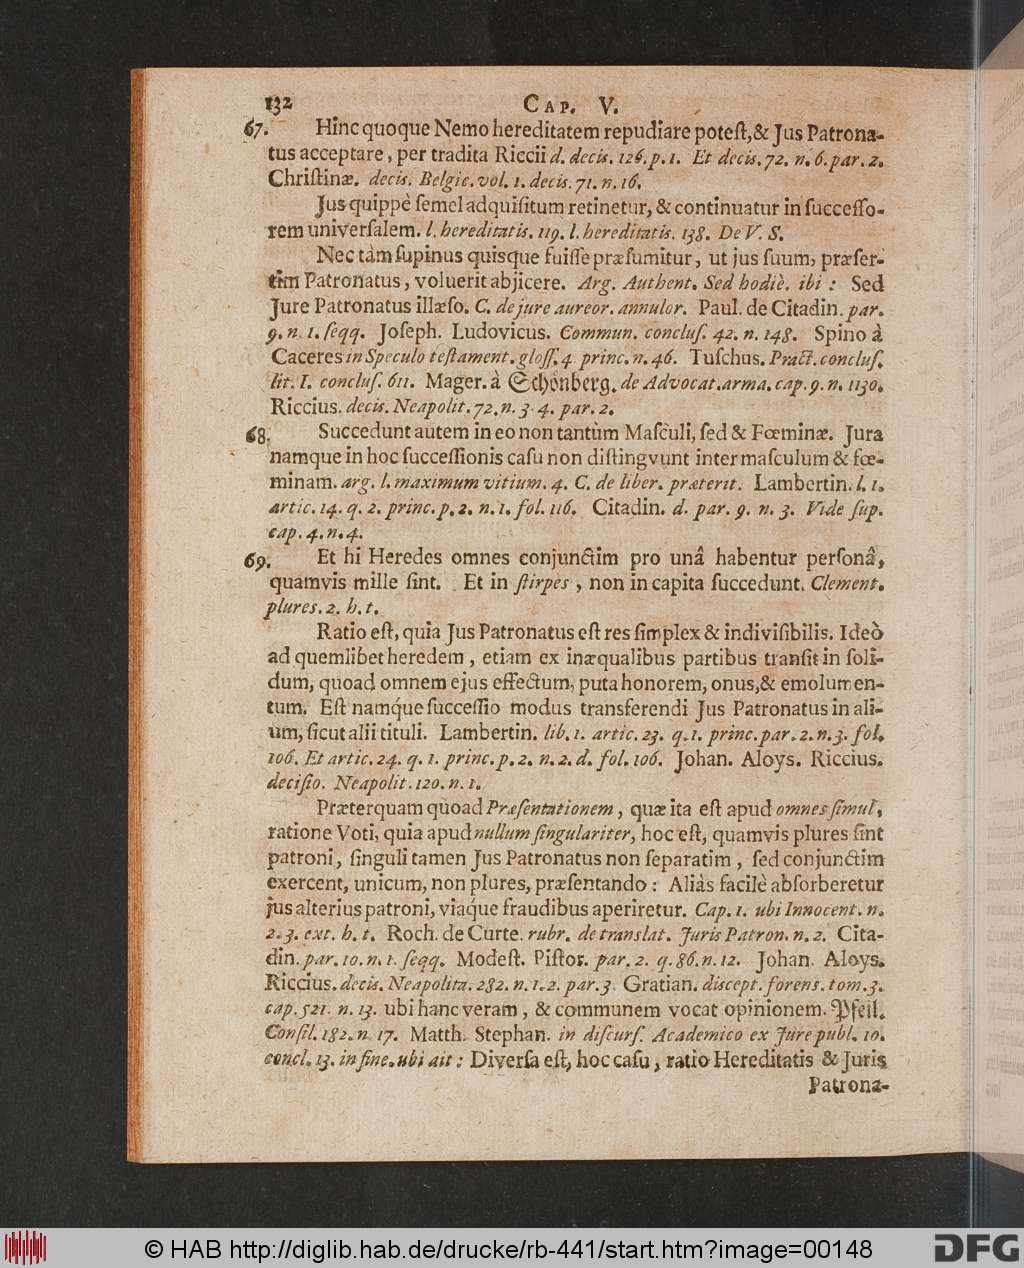 132 CAP. V.
67. Hinc quoque Nemo hereditatem repudiare potest, & Jus Patrona-
tus acceptare, per tradita Riccii d. decis. 126. p. 1. Et decis. 72. n. 6. par. 2.
Christinæ. decis. Belgic. vol. 1. decis. 71. n. 16.
Jus quippè semel adquisitum retinetur, & continuatur in successo-
rem universalem. l. hereditatis. 119. l. hereditatis. 138. De V. S.
Nec tàm supinus quisque fuisse præsumitur, ut jus suum, præser-
tim Patronatus, voluerit abjicere. Arg. Authent. Sed hodiè. ibi: Sed
Jure Patronatus illæso. C. de jure aureor. annulor. Paul. de Citadin. par.
9. n. 1. seqq. Joseph. Ludovicus. Commun. conclus. 42. n. 148. Spino à
Caceres in Speculo testament. gloss. 4. princ. n. 46. Tuschus. Pract. conclus.
lit. I. conclus. 611. Mager. à Schönberg. de Advocat. arma. cap. 9. n. 1130.
Riccius. decis. Neapolit. 72. n. 3. 4. par. 2.
68. Succedunt autem in eo non tantùm Masculi, sed & Fœminæ. Jura
namque in hoc successionis casu non distingvunt inter masculum & fœ-
minam. arg. l. maximum vitium. 4. C. de liber. præterit. Lambertin. l. 1.
artic. 14. q. 2. princ. p. 2. n. 1. fol. 116. Citadin. d. par. 9. n. 3. Vide sup.
cap. 4. n. 4.
69. Et hi Heredes omnes conjunctim pro unâ habentur personâ,
quamvis mille sint. Et in stirpes, non in capita succedunt. Clement.
plures. 2. h. t.
Ratio est, quia Jus Patronatus est res simplex & indivisibilis. Ideò
ad quemlibet heredem, etiam ex inæqualibus partibus transit in soli-
dum, quoad omnem ejus effectum, puta honorem, onus, & emolumen-
tum. Est namque successio modus transferendi Jus Patronatus in ali-
um, sicut alii tituli. Lambertin. lib. 1. artic. 23. q. 1. princ. par. 2. n. 3. fol.
106. Et artic. 24. q. 1. princ. p. 2. n. 2. d. fol. 106. Johan. Aloys. Riccius.
decisio. Neapolit. 120. n. 1.
Præterquam quoad Præsentationem, quæ ita est apud omnes simul,
ratione Voti, quia apud nullum singulariter, hoc est, quamvis plures sint
patroni, singuli tamen Jus Patronatus non separatim, sed conjunctim
exercent, unicum, non plures, præsentando: Aliàs facilè absorberetur
jus alterius patroni, viaq́ue fraudibus aperiretur. Cap. 1. ubi Innocent. n.
2. 3. ext. h. t. Roch. de Curte. rubr. de translat. Juris Patron. n. 2. Cita-
din. par. 10. n. 1. seqq. Modest. Pistor. par. 2. q. 86. n. 12. Johan. Aloys.
Riccius. decis. Neapolita. 282. n. 1. 2. par. 3. Gratian. discept. forens. tom. 3.
cap. 521. n. 13. ubi hanc veram, & communem vocat opinionem. Pfeil.
Consil. 182. n. 17. Matth. Stephan. in discurs. Academico ex Jure publ. 10.
concl. 13. in fine. ubi ait: Diversa est, hoc casu, ratio Hereditatis & Juris
Patrona-
© HAB http://diglib.hab.de/drucke/rb-441/start.htm?image=00148
DFG